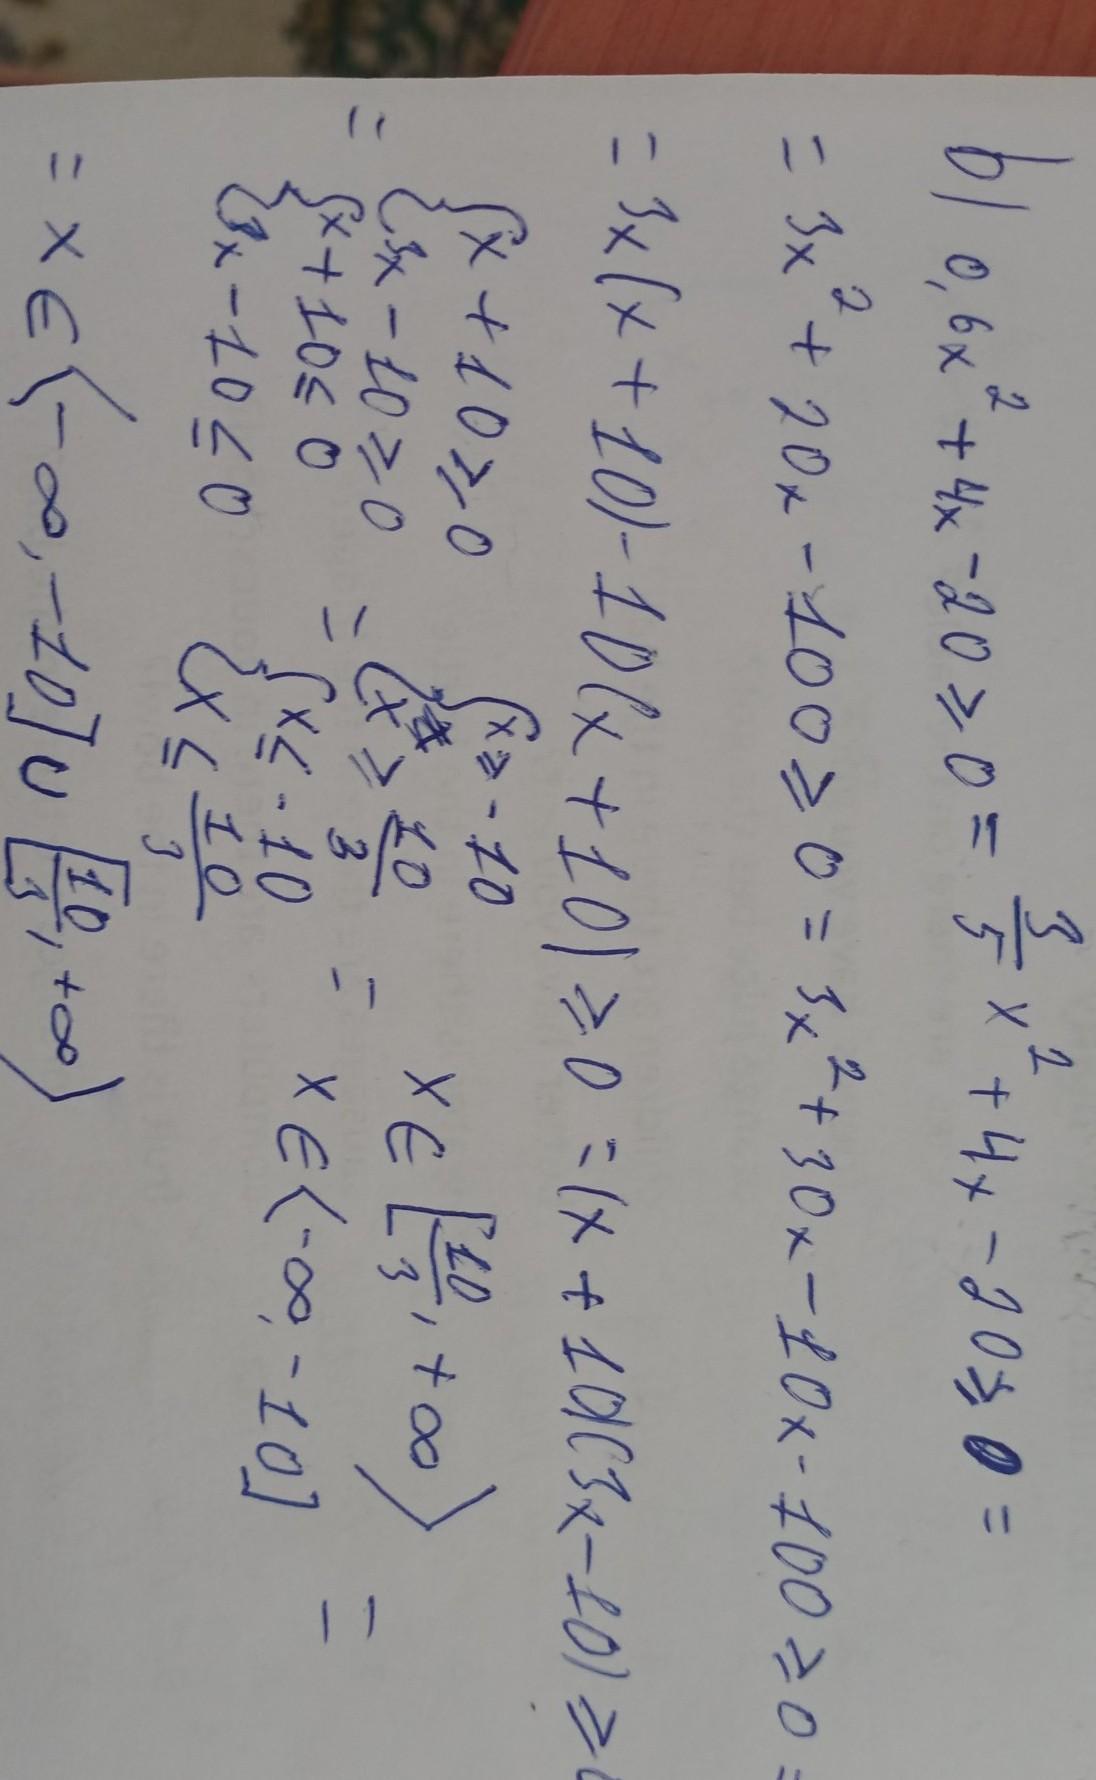 b) 0,6x² + 4x - 20 ≥ 0 = 3/5 x² + 4x - 20 ≥ 0 =
= 3x² + 20x - 100 ≥ 0 = 3x² + 30x - 10x - 100 ≥ 0 =
= 3x(x + 10) - 10(x + 10) ≥ 0 = (x + 10)(3x - 10) ≥ 0
= { x + 10 ≥ 0 = { x ≥ -10
{ 3x - 10 ≥ 0 { x ≥ 10/3 = x ∈ [10/3, +∞⟩
{ x + 10 ≤ 0 { x ≤ -10 x ∈ ⟨-∞, -10] =
{ 3x - 10 ≤ 0 { x ≤ 10/3
= x ∈ ⟨-∞, -10] ∪ [10/3, +∞⟩